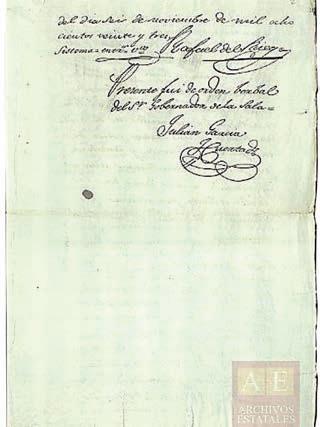 del dia seis de noviembre de mil ocho
cientos veinte y tres
Sistema = Rafael del Riego
Presente fui de orden berbal
del Sr. Gobernador de la Sala =
Julián García
Huertado
A E
ARCHIVOS
ESTATALES